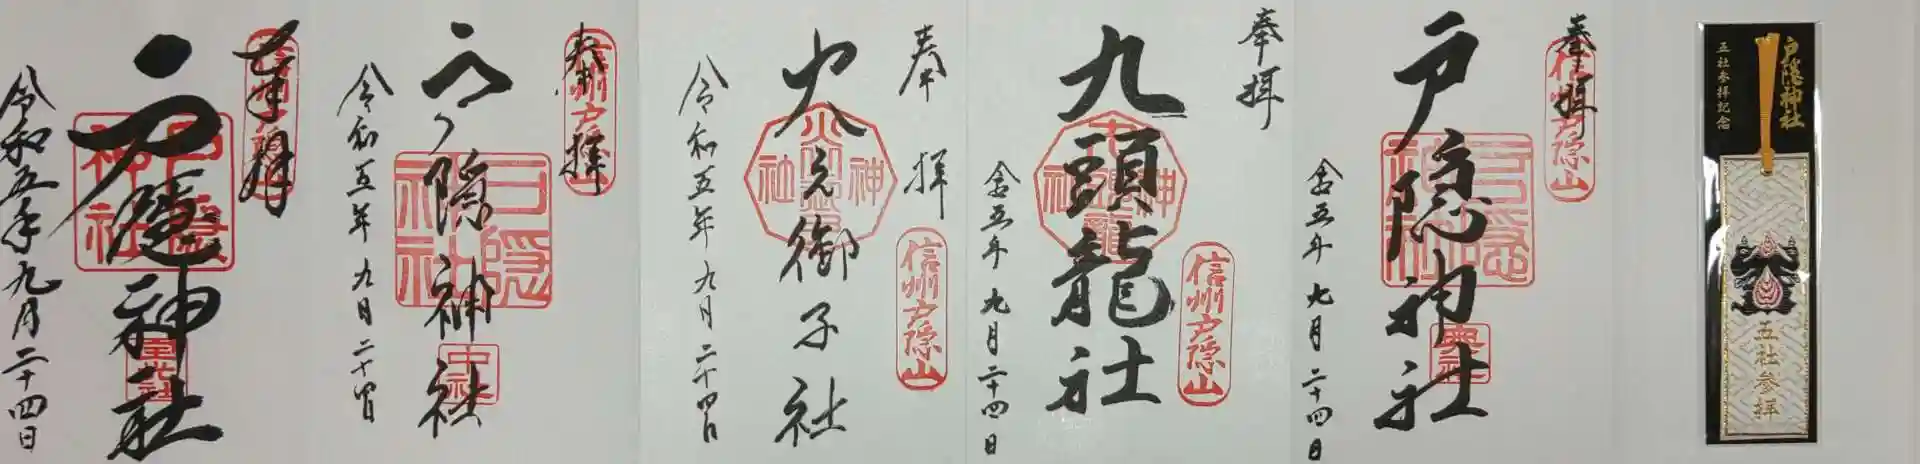 奉拝
信州戸隠山
戸隠神社
戸隠神社
宝光社
令和五年九月二十四日
奉拝
信州戸隠山
戸隠神社
戸隠神社
中社
令和五年九月二十四日
奉拝
信州戸隠山
火之御子社
神社
令和五年九月二十四日
奉拝
信州戸隠山
九頭龍社
神社
令和五年九月二十四日
奉拝
信州戸隠山
戸隠神社
戸隠神社
奥社
令和五年九月二十四日
戸隠神社
五社参拝記念
五社参拝